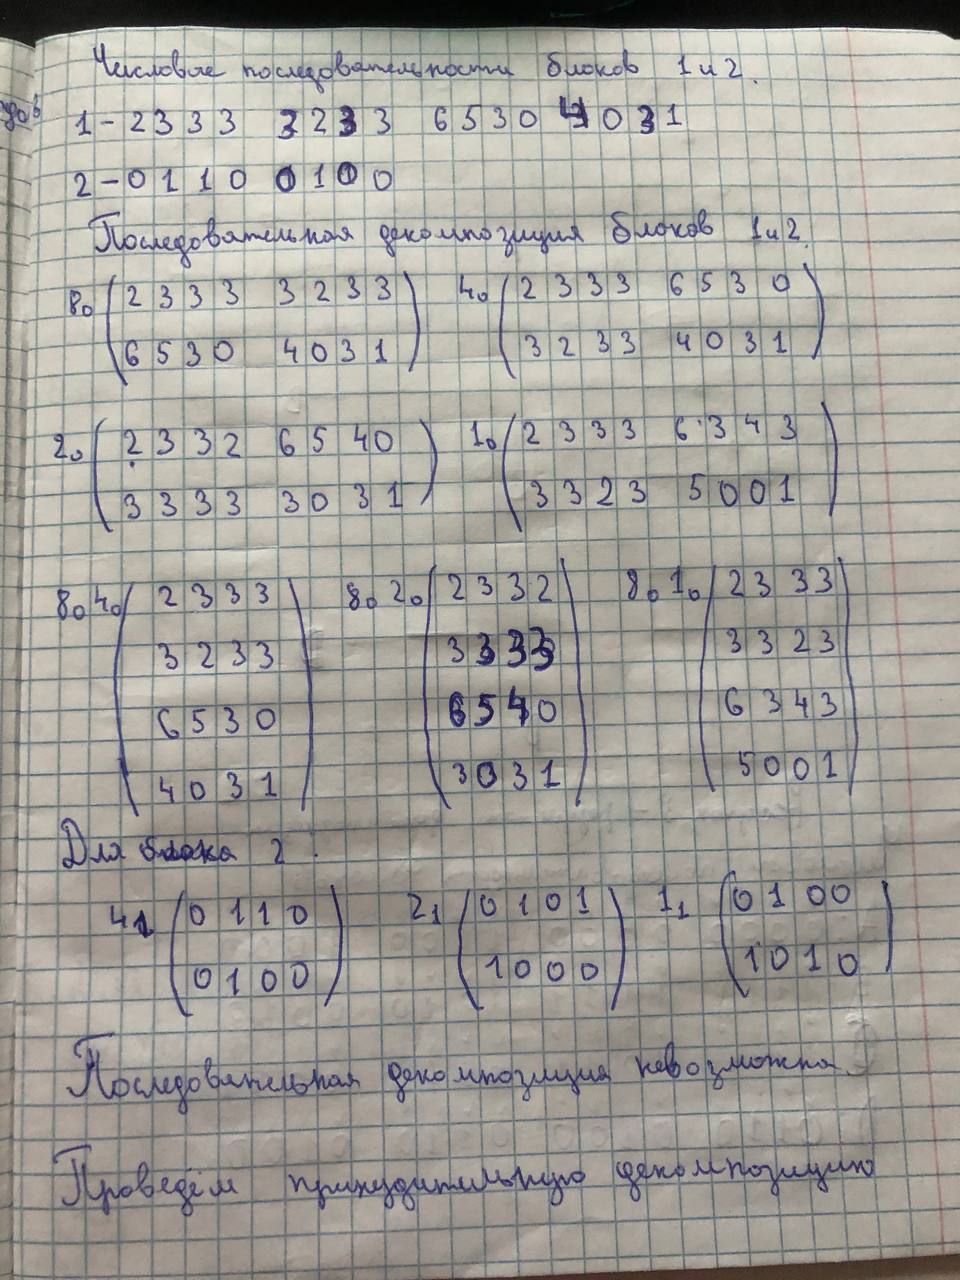 Числовые последовательности блоков 1 и 2.
1-2333 3233 6530 4031
2-0110 0100
Последовательная декомпозиция блоков 1 и 2.
8₀ (2333 3233 4₀ (2333 6530
6530 4031) 3233 4031)
2₀ (2332 6540 1₀ (2333 6343
3333 3031) 3323 5001)
8₀4₀ (2333 8₀2₀ (2332 8₀1₀ (2333
3233 3333 3323
6530 6540 6343
4031) 3031) 5001)
Для блока 2.
4₁ (0110 2₁ (0101 1₁ (0100
0100) 1000) 1010)
Последовательная декомпозиция невозможна.
Проведём принудительную декомпозицию